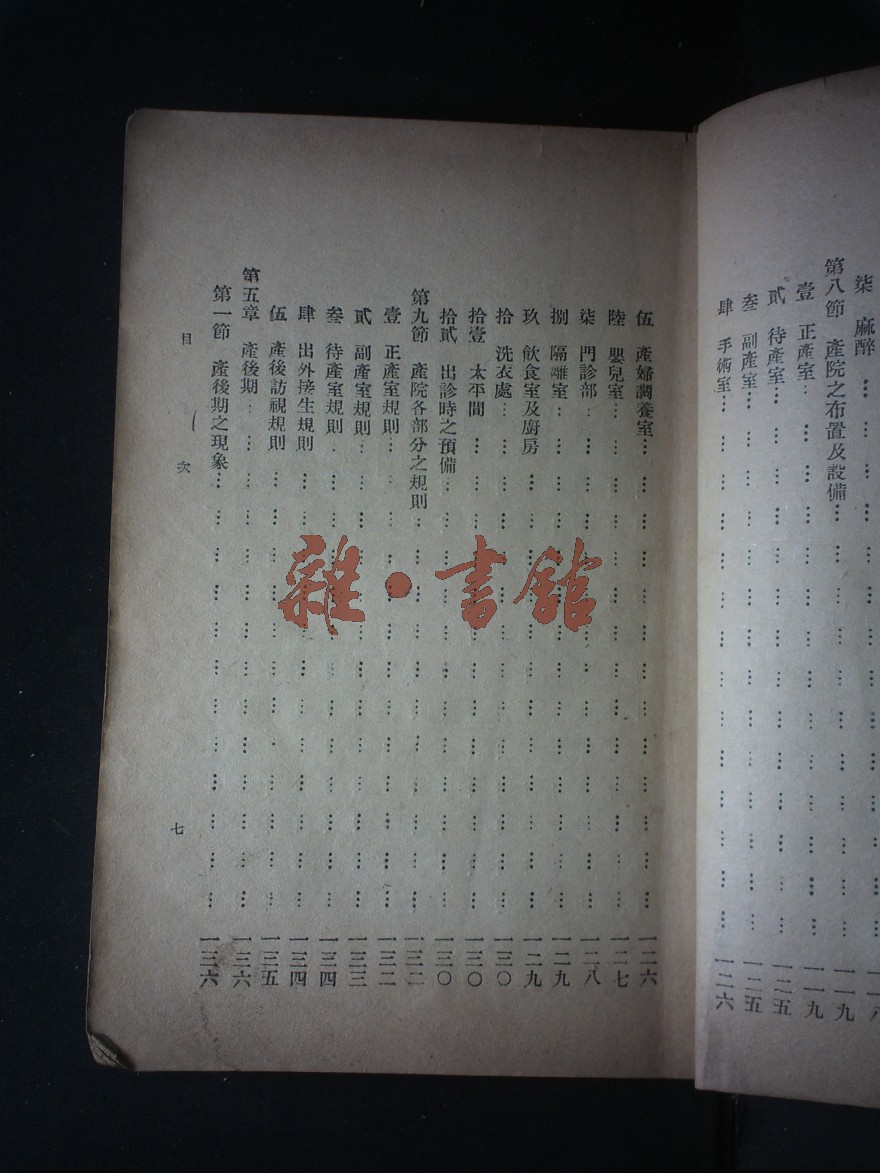 柒 麻醉
第八節 產院之布置及設備……一一九
壹 正產室……一一九
貳 待產室……一二五
叁 副產室……一二五
肆 手術室……一二六
伍 產婦調養室……一二六
陸 嬰兒室……一二七
柒 門診部……一二八
捌 隔離室……一二九
玖 飲食室及廚房……一二九
拾 洗衣處……一三〇
拾壹 太平間……一三〇
拾貳 出診時之預備……一三〇
第九節 產院各部分之規則……一三二
壹 正產室規則……一三二
貳 副產室規則……一三三
叁 待產室規則……一三四
肆 出外接生規則……一三四
伍 產後訪視規則……一三五
第五章 產後期……一三六
第一節 產後期之現象……一三六
目次 七
雜·書館